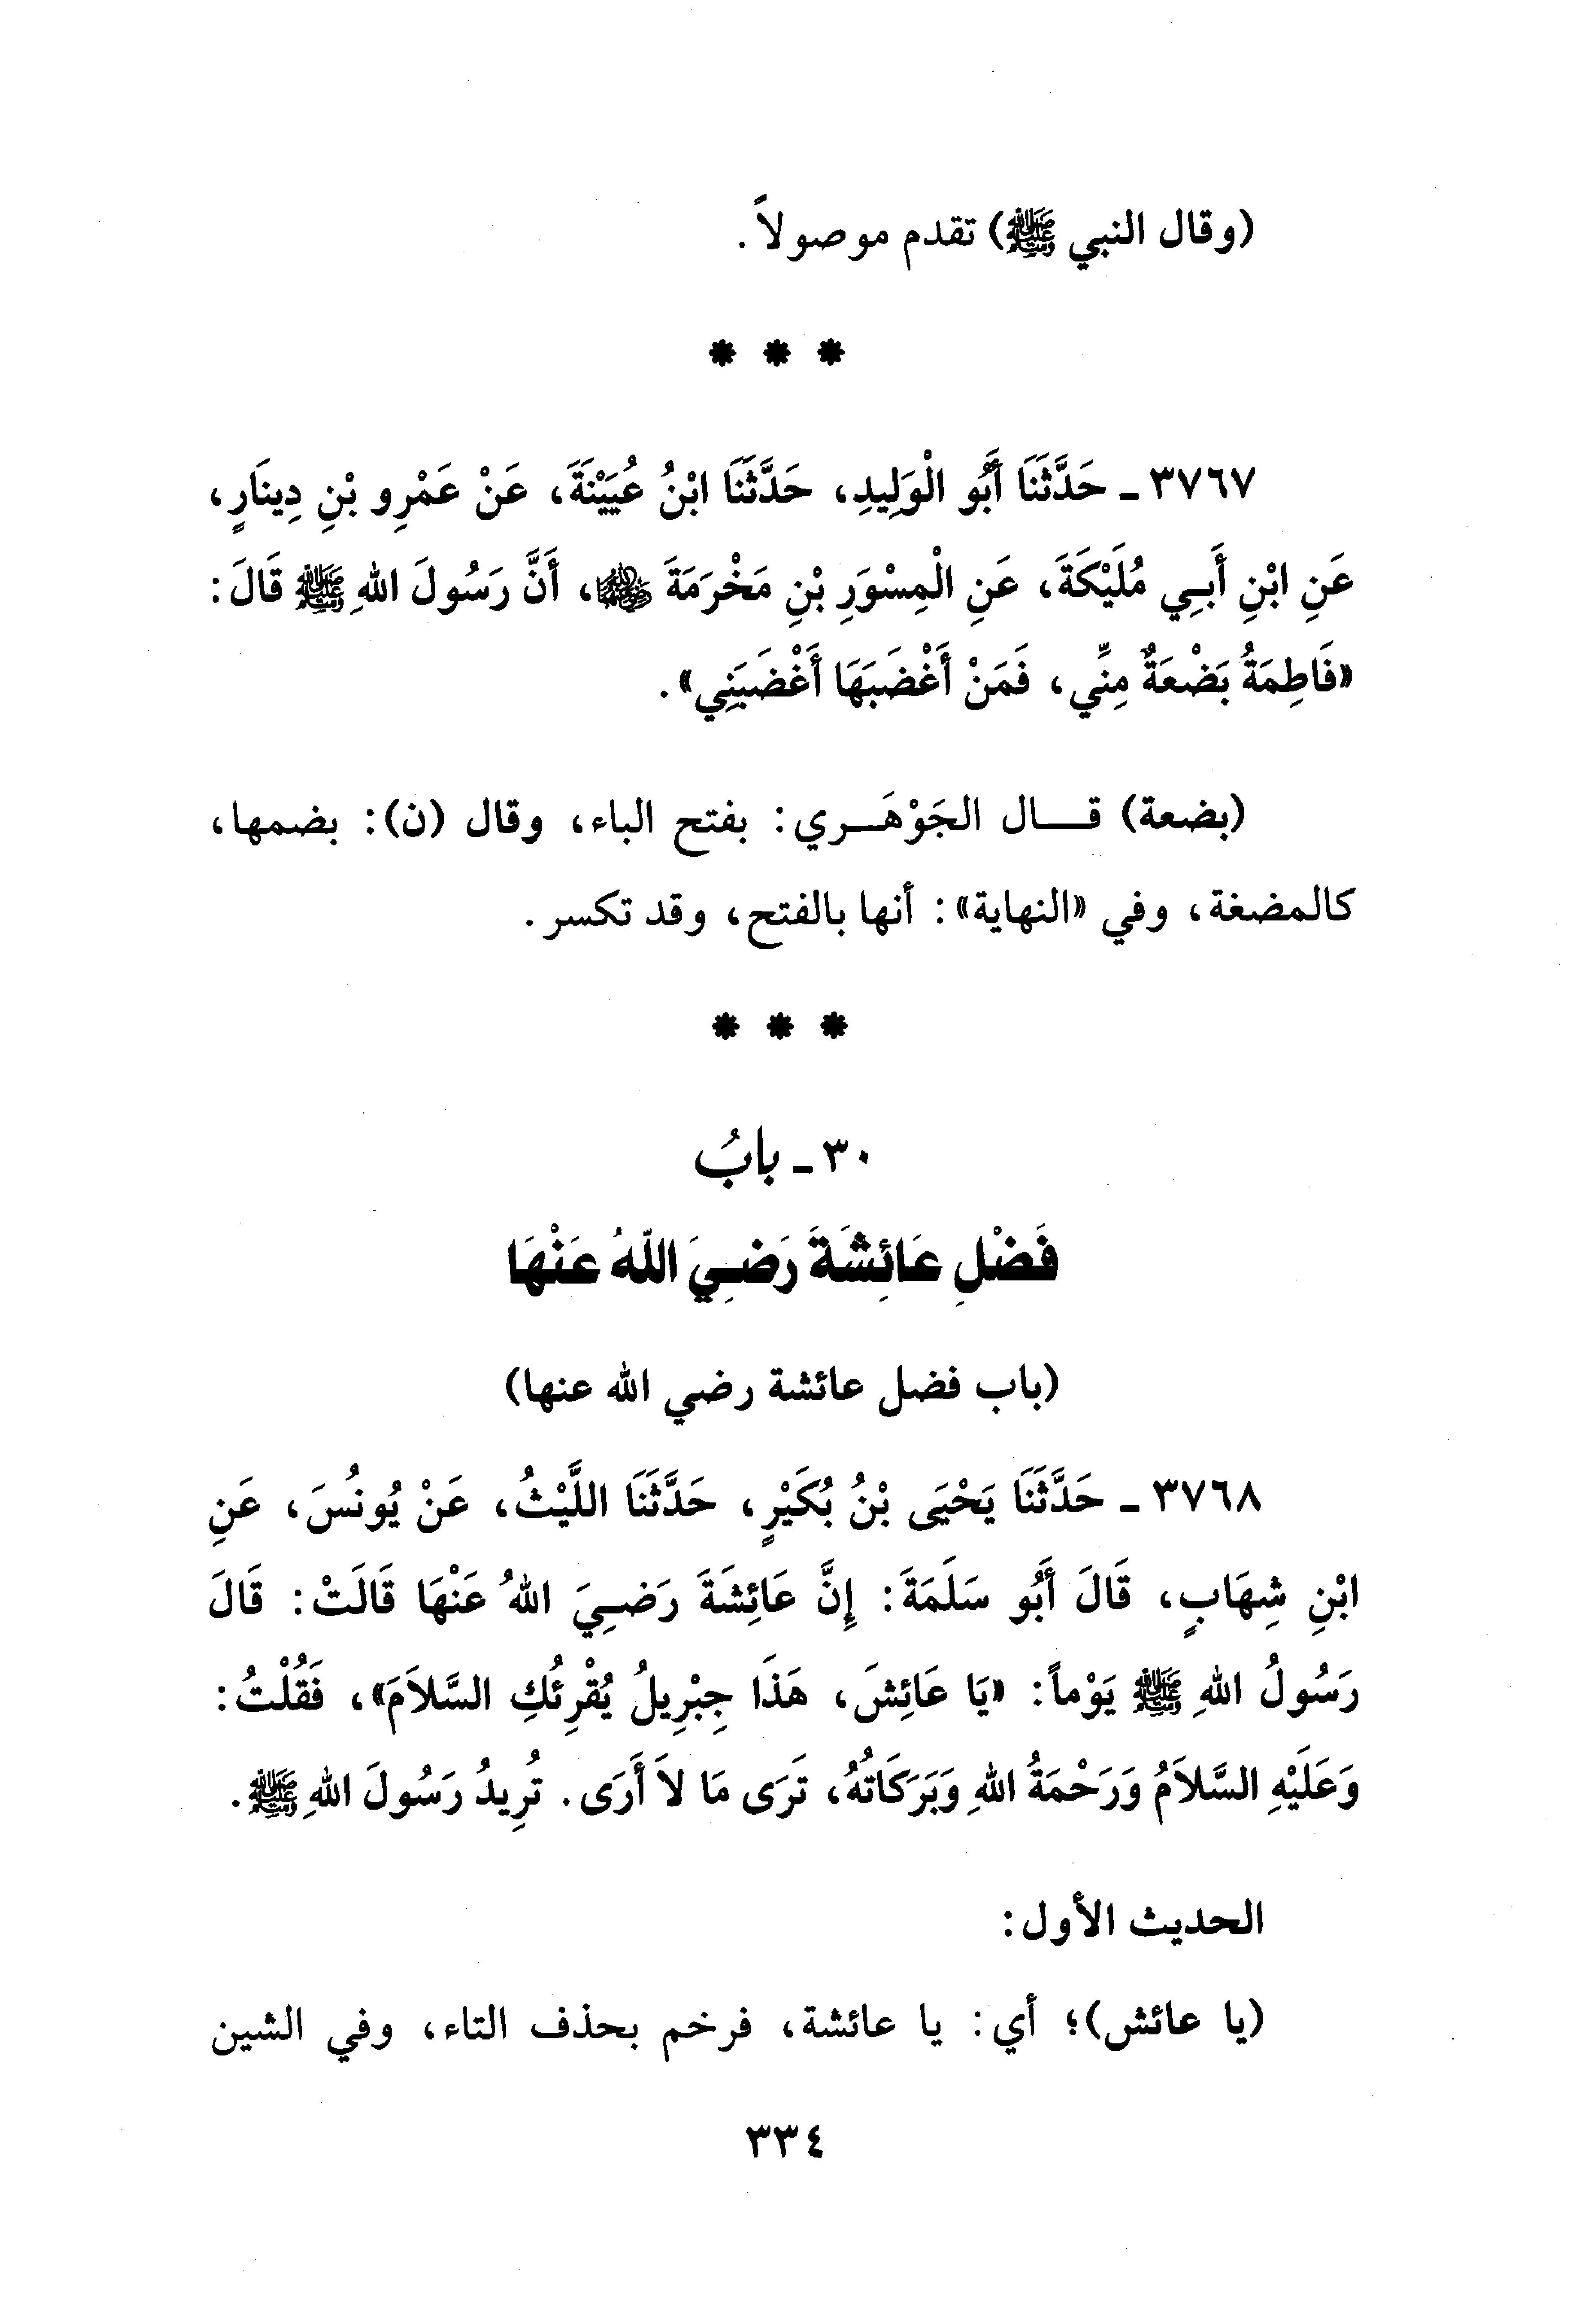 (وقال النبي ﷺ) تقدم موصولاً.
* * *
٣٧٦٧ - حَدَّثَنَا أَبُو الْوَلِيدِ، حَدَّثَنَا ابْنُ عُيَيْنَةَ، عَنْ عَمْرِو بْنِ دِينَارٍ،
عَنِ ابْنِ أَبِي مُلَيْكَةَ، عَنِ الْمِسْوَرِ بْنِ مَخْرَمَةَ ﵁، أَنَّ رَسُولَ اللهِ ﷺ قَالَ:
«فَاطِمَةُ بَضْعَةٌ مِنِّي، فَمَنْ أَغْضَبَهَا أَغْضَبَنِي».
(بضعة) قال الجَوْهَري: بفتح الباء، وقال (ن): بضمها،
كالمضغة، وفي «النهاية»: أنها بالفتح، وقد تكسر.
* * *
٣٠ - بابُ
فَضْلِ عَائِشَةَ رَضِيَ اللهُ عَنْهَا
(باب فضل عائشة رضي الله عنها)
٣٧٦٨ - حَدَّثَنَا يَحْيَى بْنُ بُكَيْرٍ، حَدَّثَنَا اللَّيْثُ، عَنْ يُونُسَ، عَنِ
ابْنِ شِهَابٍ، قَالَ أَبُو سَلَمَةَ: إِنَّ عَائِشَةَ رَضِيَ اللهُ عَنْهَا قَالَتْ: قَالَ
رَسُولُ اللهِ ﷺ يَوْماً: «يَا عَائِشَ، هَذَا جِبْرِيلُ يُقْرِئُكِ السَّلاَمَ»، فَقُلْتُ:
وَعَلَيْهِ السَّلاَمُ وَرَحْمَةُ اللهِ وَبَرَكَاتُهُ، تَرَى مَا لاَ أَرَى. تُرِيدُ رَسُولَ اللهِ ﷺ.
الحديث الأول:
(يا عائش)؛ أي: يا عائشة، فرخم بحذف التاء، وفي الشين
٣٣٤